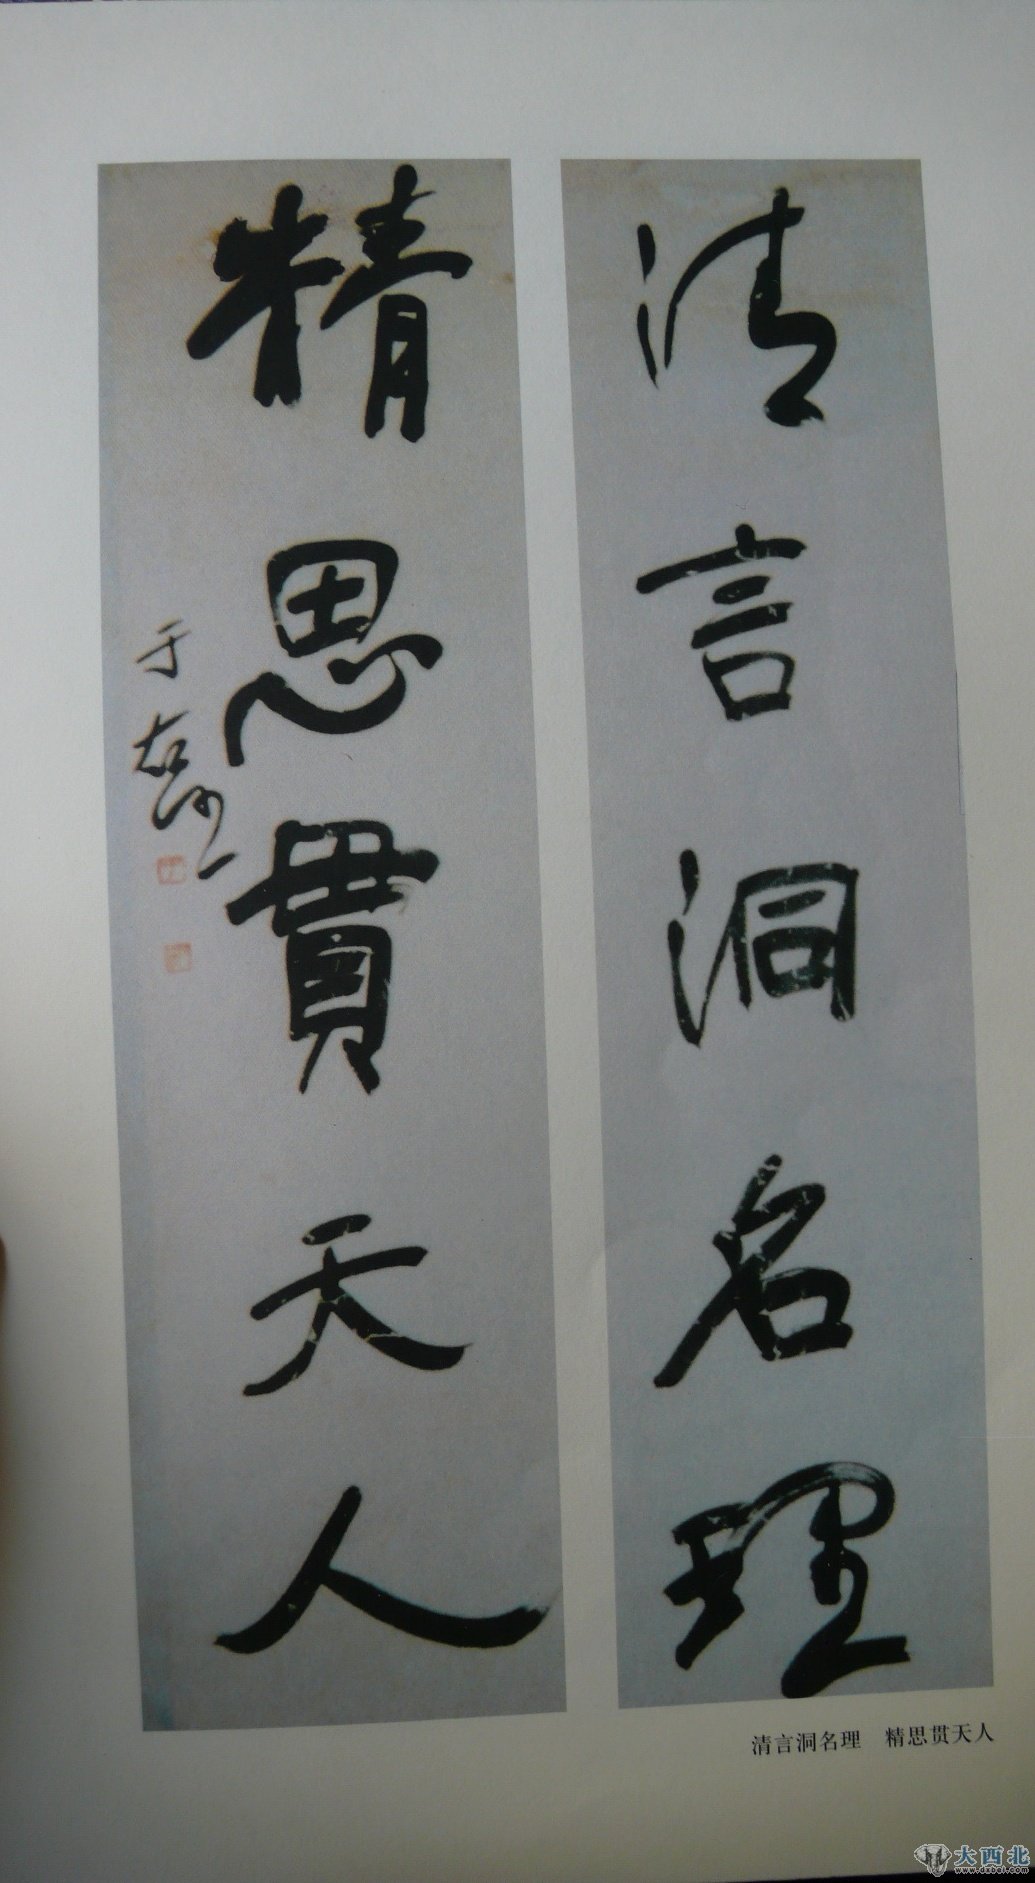 清言洞名理
精思貫天人
于右任
清言洞名理 精思贯天人
大西北
www.dxbei.com